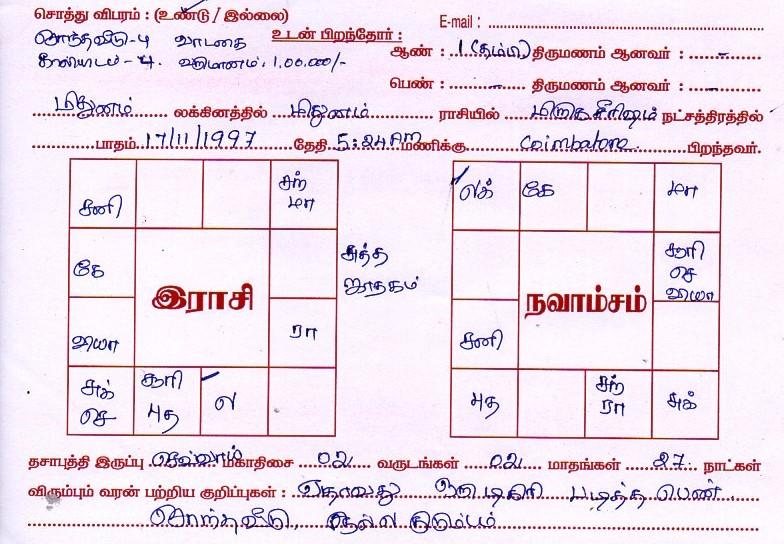 சொத்து விபரம் : (உண்டு / இல்லை)
E-mail :
சொந்தவீடு - 4 வாடகை
உடன் பிறந்தோர் :
ஆண் : 1 (தம்பி) திருமணம் ஆனவர் : -
காலியிடம் - 4. வருமானம். 1,00,000/-
பெண் : - திருமணம் ஆனவர் : -
மிதுனம் லக்கினத்தில் மிதுனம் ராசியில் மிருகசீரிஷம் நட்சத்திரத்தில்
பாதம் 17/11/1997 தேதி 5:24 AM மணிக்கு Coimbatore பிறந்தவர்.
சனி
சந் மா
கே
இராசி
சுத்த ஜாதகம்
வியா
ரா
சுக் செ
சூரி புத
ல
லக்
கே
மா
சூரி செ வியா
நவாம்சம்
சனி
புத
சந் ரா
சுக்
தசாபுத்தி இருப்பு செவ்வாய் மகாதிசை 02 வருடங்கள் 02 மாதங்கள் 27 நாட்கள்
விரும்பும் வரன் பற்றிய குறிப்புகள் : ஏதாவது ஒரு டிகிரி படித்த பெண்.
சொந்தவீடு, நல்ல குடும்பம்